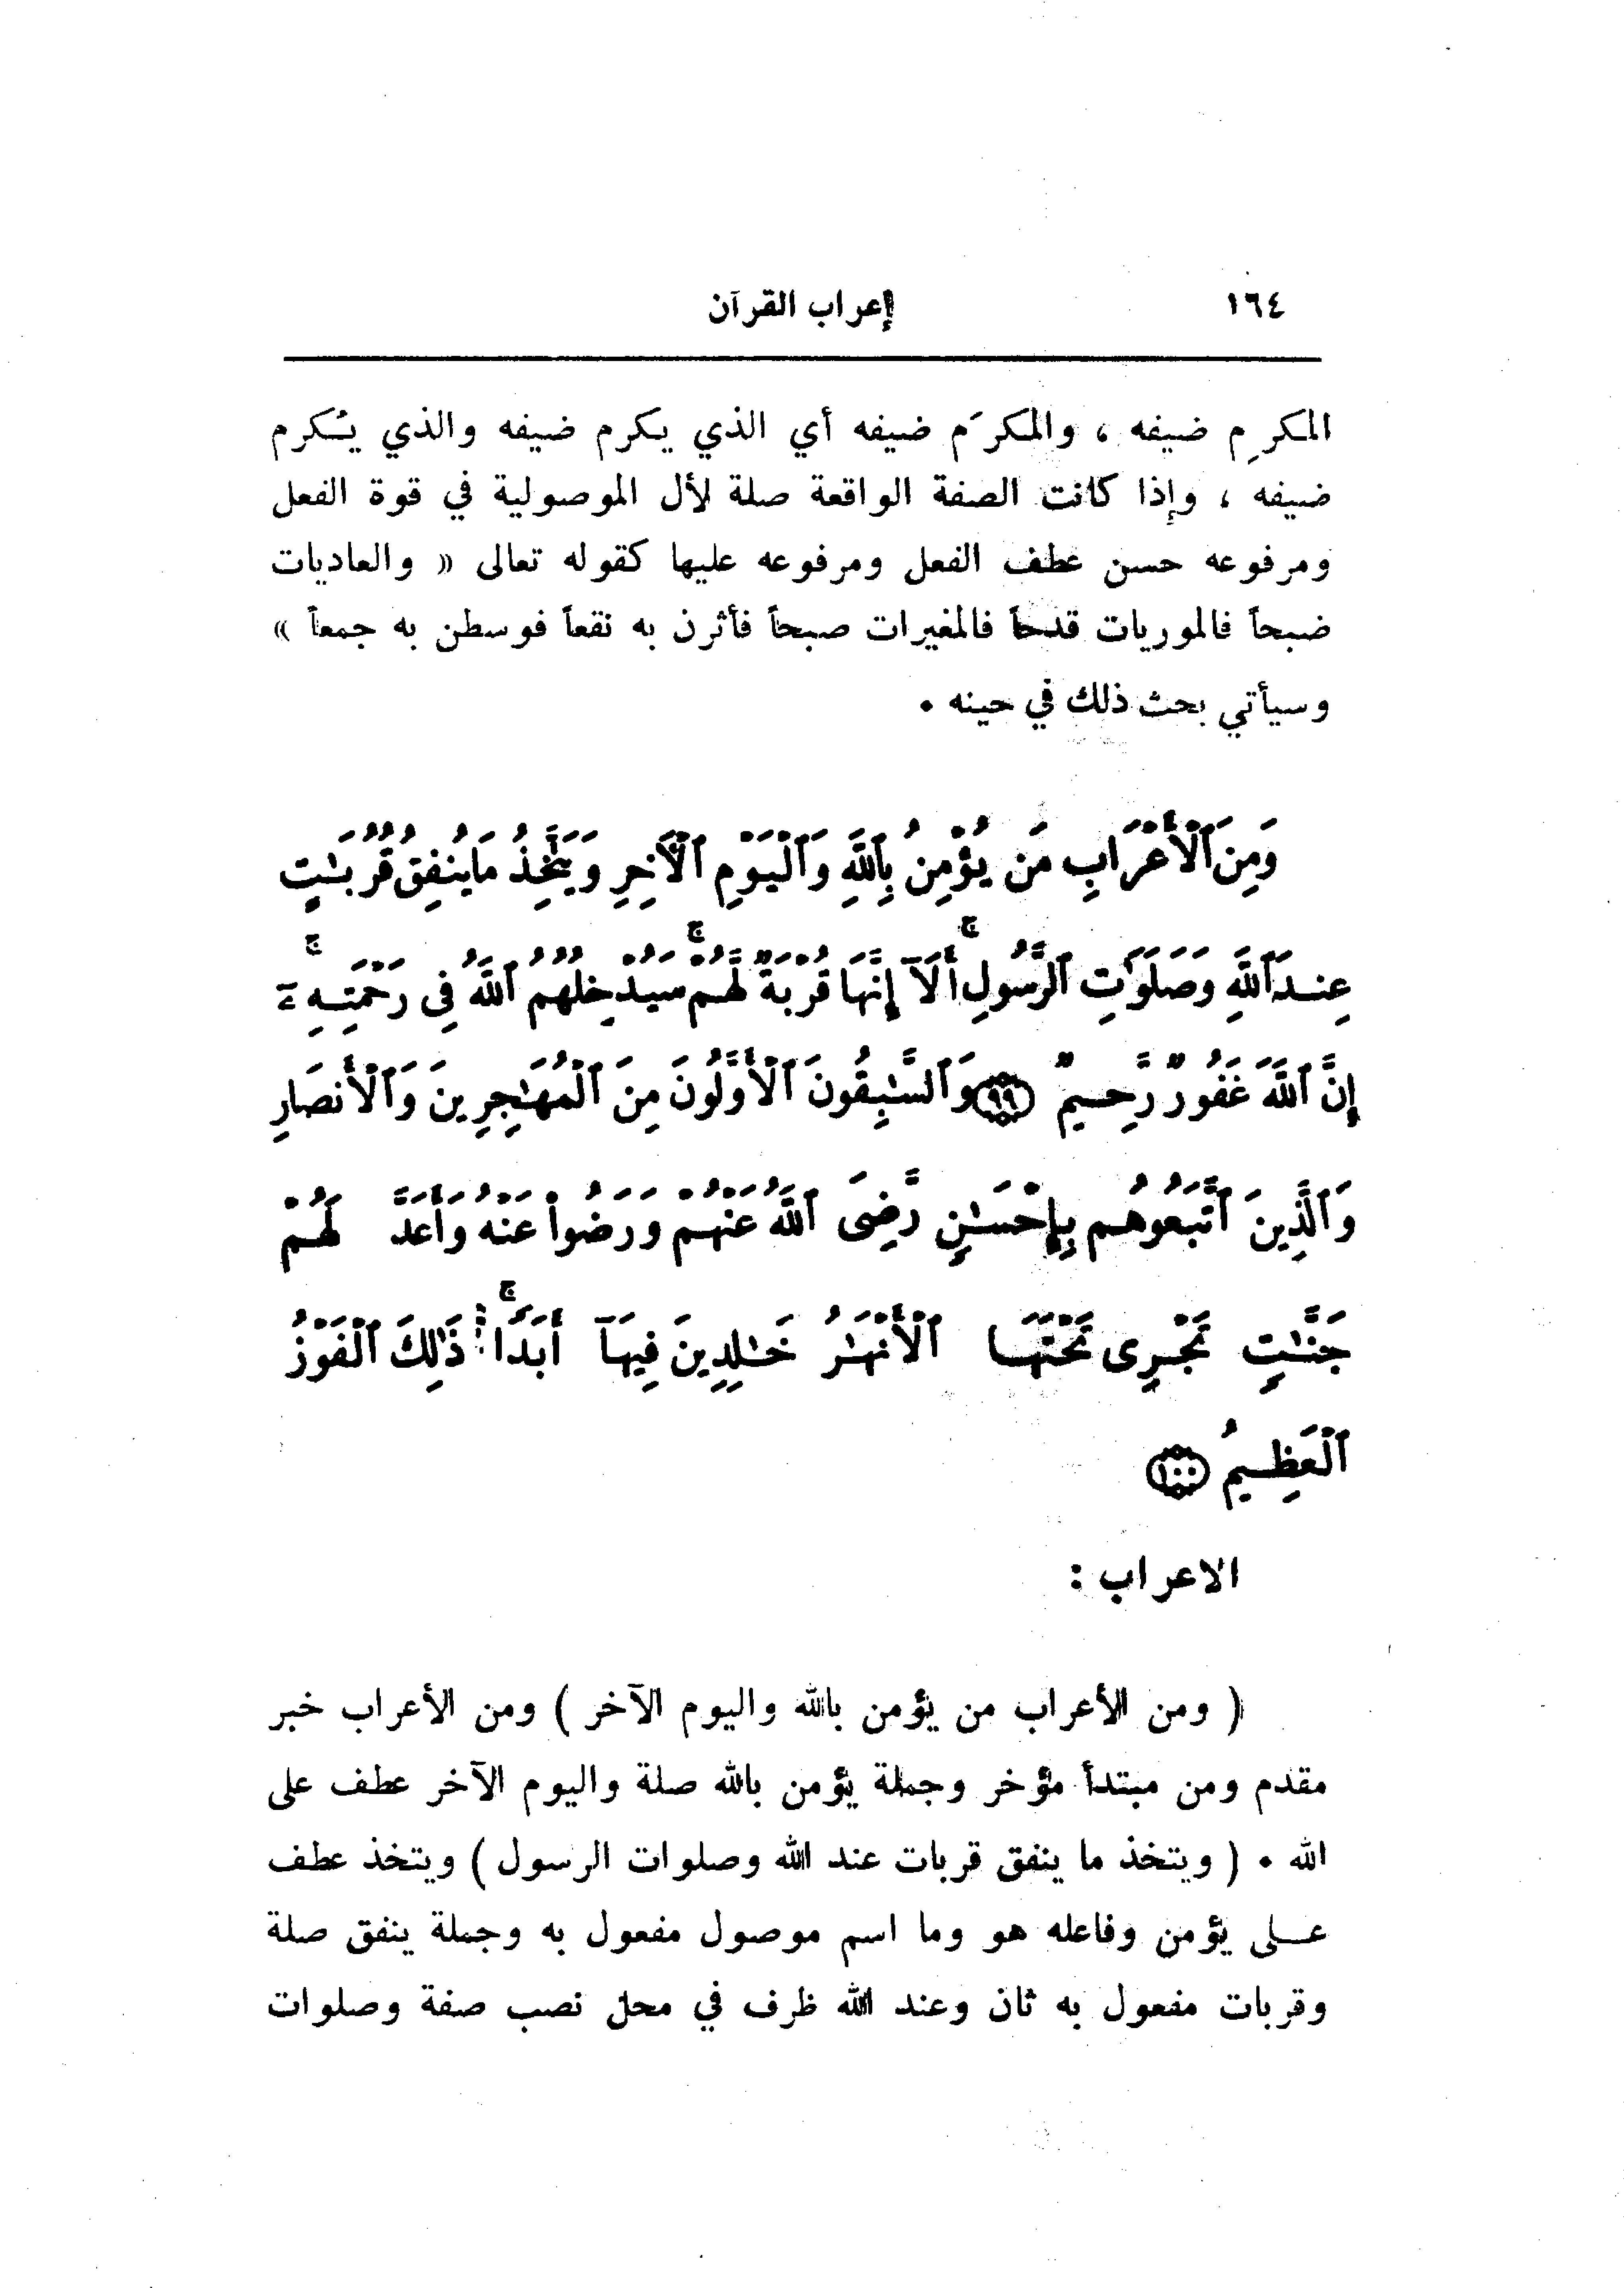 ١٦٤ إعراب القرآن
المكرِم ضيفه ، والمكرَم ضيفه أي الذي يكرم ضيفه والذي يُكرم
ضيفه ، وإذا كانت الصفة الواقعة صلة لأل الموصولية في قوة الفعل
ومرفوعه حسن عطف الفعل ومرفوعه عليها كقوله تعالى « والعاديات
ضبحاً فالموريات قدحاً فالمغيرات صبحاً فأثرن به نقعاً فوسطن به جمعاً »
وسيأتي بحث ذلك في حينه .
وَمِنَ ٱلْأَعْرَابِ مَن يُؤْمِنُ بِٱللَّهِ وَٱلْيَوْمِ ٱلْآخِرِ وَيَتَّخِذُ مَا يُنفِقُ قُرُبَٰتٍ
عِندَ ٱللَّهِ وَصَلَوَٰتِ ٱلرَّسُولِ ۚ أَلَآ إِنَّهَا قُرْبَةٌ لَّهُمْ ۚ سَيُدْخِلُهُمُ ٱللَّهُ فِى رَحْمَتِهِۦٓ ۚ
إِنَّ ٱللَّهَ غَفُورٌ رَّحِيمٌ ٩٩ وَٱلسَّٰبِقُونَ ٱلْأَوَّلُونَ مِنَ ٱلْمُهَٰجِرِينَ وَٱلْأَنصَارِ
وَٱلَّذِينَ ٱتَّبَعُوهُم بِإِحْسَٰنٍ رَّضِىَ ٱللَّهُ عَنْهُمْ وَرَضُوا۟ عَنْهُ وَأَعَدَّ لَهُمْ
جَنَّٰتٍ تَجْرِى تَحْتَهَا ٱلْأَنْهَٰرُ خَٰلِدِينَ فِيهَآ أَبَدًا ۚ ذَٰلِكَ ٱلْفَوْزُ
ٱلْعَظِيمُ ١٠٠
الاعراب :
( ومن الأعراب من يؤمن بالله واليوم الآخر ) ومن الأعراب خبر
مقدم ومن مبتدأ مؤخر وجملة يؤمن بالله صلة واليوم الآخر عطف على
الله . ( ويتخذ ما ينفق قربات عند الله وصلوات الرسول ) ويتخذ عطف
على يؤمن وفاعله هو وما اسم موصول مفعول به وجملة ينفق صلة
وقربات مفعول به ثان وعند الله ظرف في محل نصب صفة وصلوات